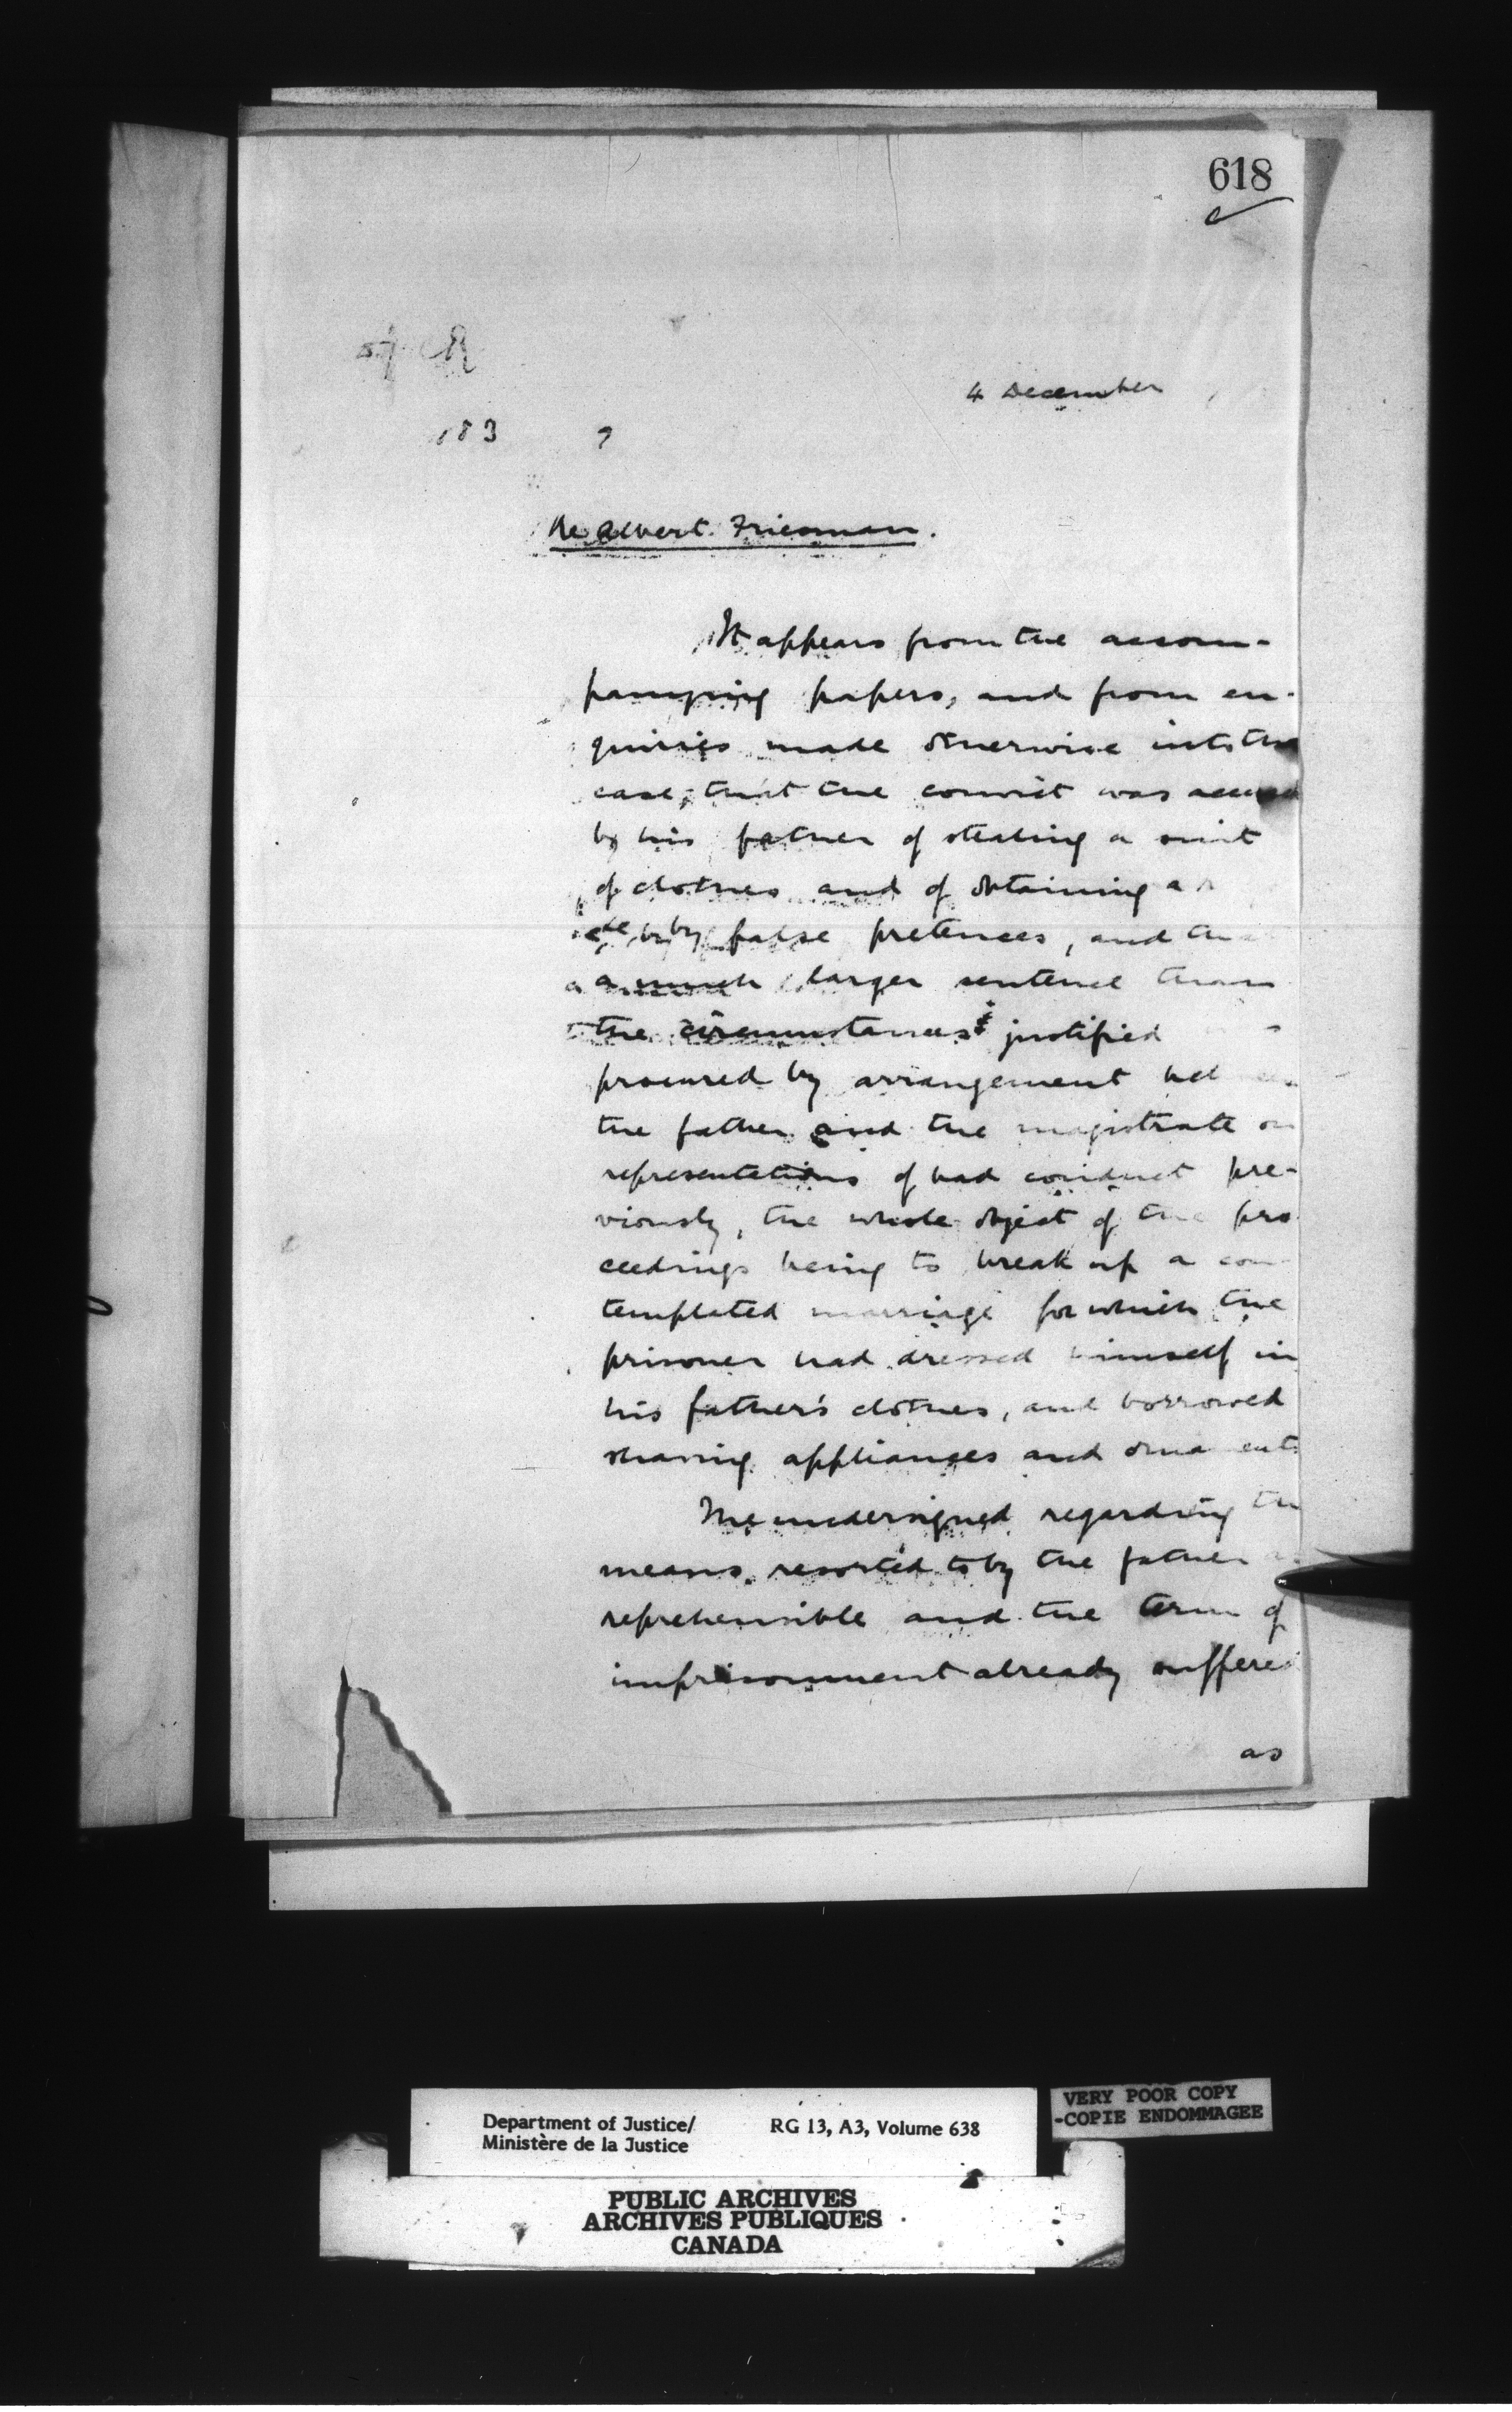 618
4 December
183
Re Albert Friesman.
It appears from the accom-
panying papers, and from en-
quiries made otherwise into the
case, that the convict was accused
by his father of stealing a suit
of clothes and of obtaining a
by false pretences, and
a much larger sentence than
the circumstances justified
procured by arrangement
the father and the magistrate on
representations of bad conduct pre-
viously, the whole object of the pro
ceedings being to break up a con
templated marriage for which the
prisoner had dressed himself in
his father's clothes, and borrowed
shaving appliances and ornaments
The undersigned regarding the
means resorted to by the father
reprehensible and the term of
imprisonment already suffered
as
VERY POOR COPY
-COPIE ENDOMMAGEE
Department of Justice/ RG 13, A3, Volume 638
Ministère de la Justice
PUBLIC ARCHIVES
ARCHIVES PUBLIQUES
CANADA